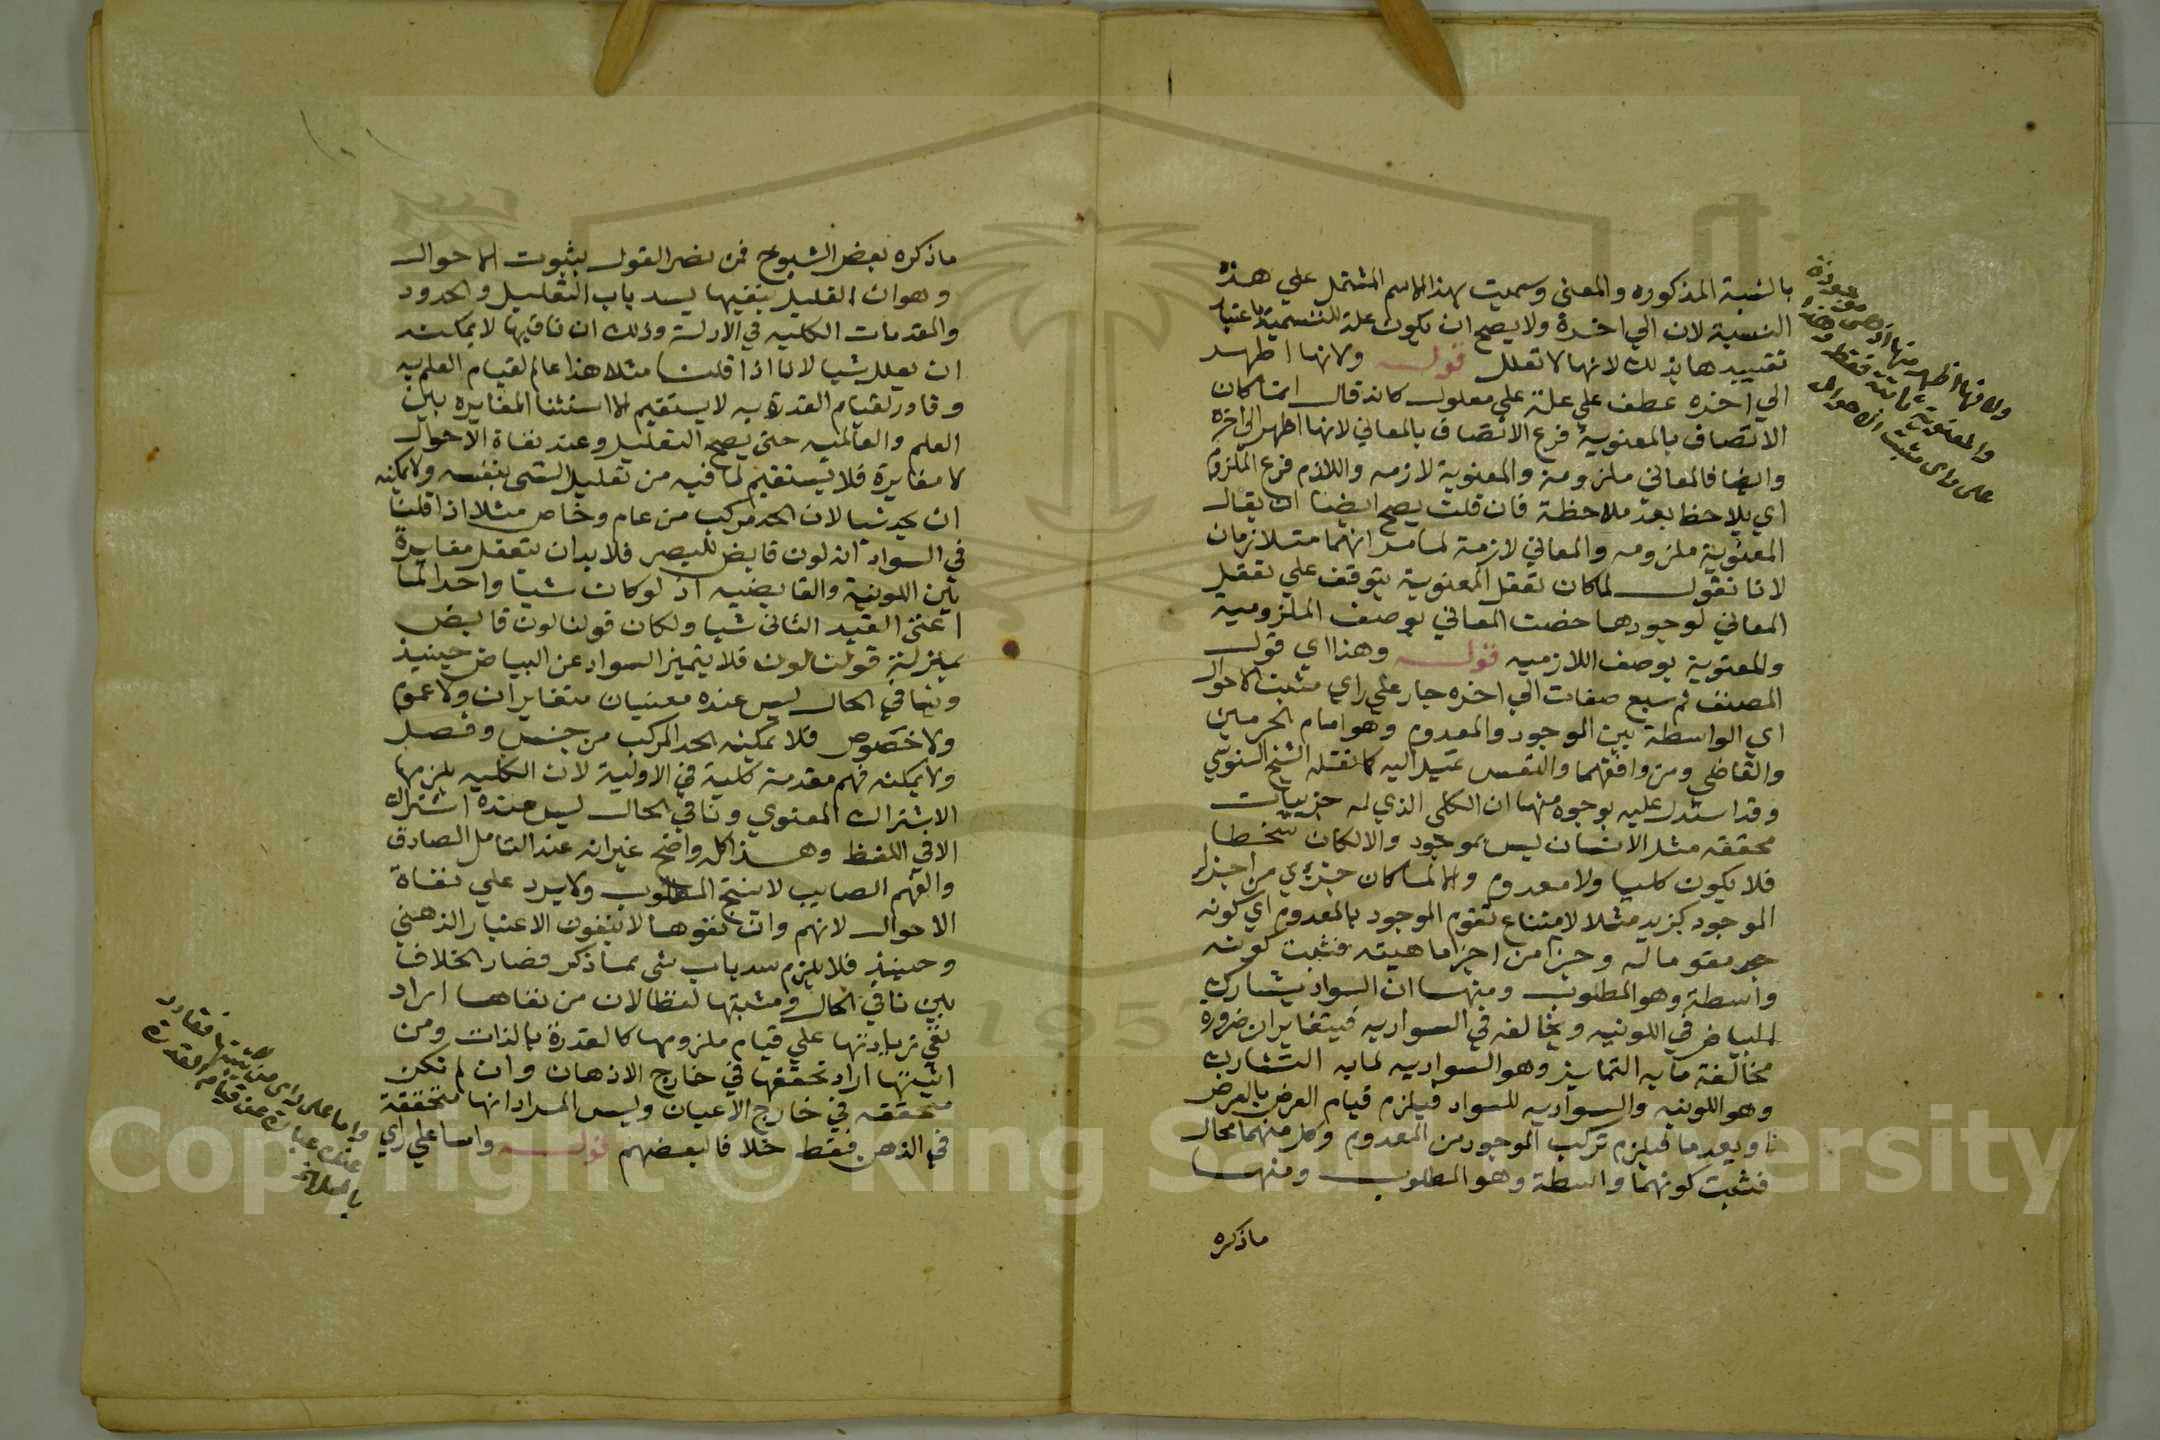 بالنسبة المذكوره والمعنى وسميت بهذا الاسم المشتمل علي هذه
النسبة لان الي اخرة ولا يصح ان يكون علة للتسمية باعتبار
تقييدها بذلك لانها لا تعلل قوله ولانها اظهر
الي اخره عطف علي علة علي معلول كانه قال انما كان
الاتصاف بالمعنوية فرع الاتصاف بالمعاني لانها اظهر الي اخره
وايضا فالمعاني ملزومة والمعنوية لازمه واللازم فرع الملزوم
اي يلاحظ بعد ملاحظة فان قلت يصح ايضا ان يقال
المعنوية ملزومه والمعاني لازمة لما مر انهما متلازمان
لانا نقول لما كان تعقل المعنوية يتوقف علي تعقل
المعاني لوجودها خصت المعاني بوصف الملزومية
والمعنوية بوصف اللازميه قوله وهذا اي قول
المصنف ثم سبع صفات الي اخره جار علي راي مثبت الاحوال
اي الواسطة بين الموجود والمعدوم وهو امام الحرمين
والقاضي ومن وافقهما والنفس تميل اليه كما نقله الشيخ السنوسي
وقد استدل عليه بوجوه منها ان الكلي الذي له جزييات
محققه مثل الانسان ليس بموجود والا لكان شخصا
فلا يكون كليا ولا معدوم والا لما كان جزء من اجزاء
الموجود كزيد مثلا لامتناع تقوم الموجود بالمعدوم اي كونه
مقوما له وجزا من اجزا ماهيته فثبت كونه
واسطة وهو المطلوب ومنها ان السواد يشارك
البياض في اللونيه ويخالفه في السواديه فيتغايران ضروره
مخالفة مابه التمايز وهو السواديه لمابه التشارك
وهو اللونيه والسواديه للسواد فيلزم قيام العرض بالعرض
او يعدما فيلزم تركب الموجود من المعدوم وكل منهما محال
فثبت كونهما واسطة وهو المطلوب ومنها
ماذكره
ولانها اظهر منها اذ هي موجودة
والمعنوية ثابتة فقط وهذا
علي راي مثبت الاحوال
ماذكره بعض الشيوخ فمن نصر القول بثبوت الاحوال
وهو ان القليل بنفيها يسد باب التعليل والحدود
والمقدمات الكليه في الادلة وذلك ان نافيها لا يمكنه
ان يعلل شيا لانا اذا قلنا مثلا هذا عالم لقيام العلم به
وقادر لقيام القدرة به لا يستقيم الا استثنا المغايره بين
العلم والعالميه حتى يصح التعليل وعند نفاة الاحوال
لا مغايرة فلا يستقيم لما فيه من تعليل الشي بنفسه ولا يمكنه
ان يحد شيا لان الحد مركب من عام وخاص مثلا اذا قلنا
في السواد انه لون قابض للبصر فلا بد ان يتعقل مغايرة
بين اللونية والقابضيه اذ لو كان شيا واحدا لما
اغنى القيد الثاني شيا ولكان قولنا لون قابض
بمنزلة قولنا لون فلا يتميز السواد عن البياض حينيذ
ونافي الحال ليس عنده معنيان متغايران ولا عموم
ولا خصوص فلا يمكنه الحد المركب من جنس وفصل
ولا يمكنه فهم مقدمة كلية في الاولية لان الكليه يلزمها
الاشتراك المعنوي ونافي الحال ليس عنده اشتراك
الا في اللفظ وهذا كله واضح غير انه عند التامل الصادق
والفهم الصايب لا ينتج المطلوب ولا يرد علي نفاة
الاحوال لانهم وان نفوها لا ينفون الاعتبار الذهني
وحينيذ فلا يلزم سد باب شي مما ذكر فصار الخلاف
بين نافي الحال ومثبتها لفظا لان من نفاها اراد
نفي زيادتها علي قيام ملزومها كالقدرة بالذات ومن
اثبتها اراد تحققها في خارج الاذهان وان لم تكن
متحققه في خارج الاعيان وليس المراد انها متحققة
في الذهن فقط خلافا لبعضهم قوله واما علي راي
واما علي راي من لا يثبتها فقادر
عنده عبارة عن قيام القدرة
بالذات